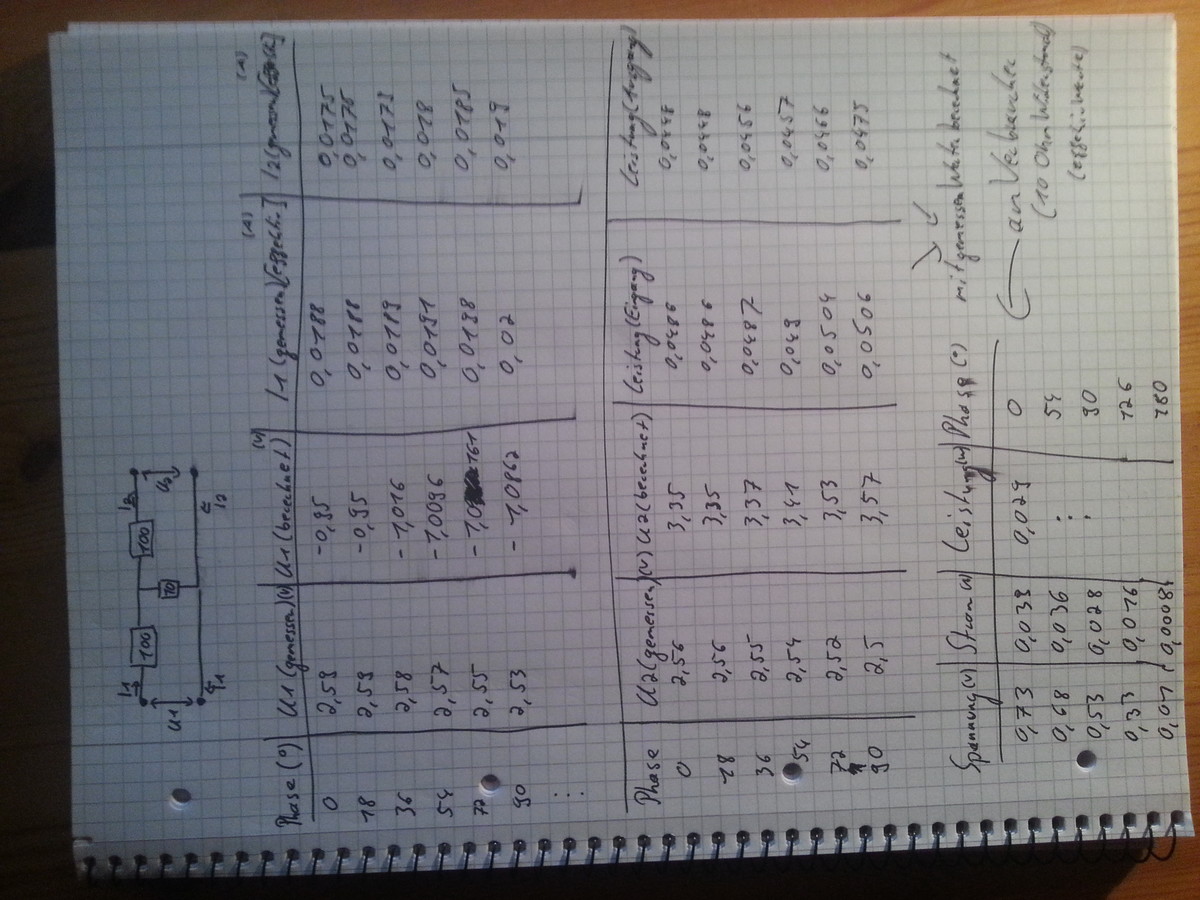 I1 100 100 I2
U1 10 U2
I1 I2
(V) (A) (A)
Phase (°) U1(gemessen)(V) U1(berechnet) I1(gemessen)[effektiv] I2(gemessen)
0 2,59 -0,95 0,0188 0,0175
18 2,59 -0,95 0,0188 0,0175
36 2,58 -1,016 0,0189 0,0179
54 2,57 -1,0096 0,0191 0,018
72 2,55 0,0198 0,0185
90 2,53 -1,0862 0,02 0,019
Phase U2(gemessen)(V) U2(berechnet) Leistung(Eigang) Leistung(Ausgang)
0 2,56 3,35 0,0486 0,0448
18 2,56 3,35 0,0486 0,0448
36 2,55 3,37 0,0487 0,0456
54 2,54 3,41 0,049 0,0457
72 2,52 3,53 0,0504 0,0466
90 2,5 3,57 0,0506 0,0475
mit gemessen Werten berechnet
Spannung(V) Strom(A) Leistung(W) Phase(°)
0,73 0,039 0,029 0
an Verbraucher
0,68 0,036 54
(10 Ohm Widerstand)
0,53 0,028 90
(effektivwerte)
0,33 0,016 126
0,01 0,00084 180